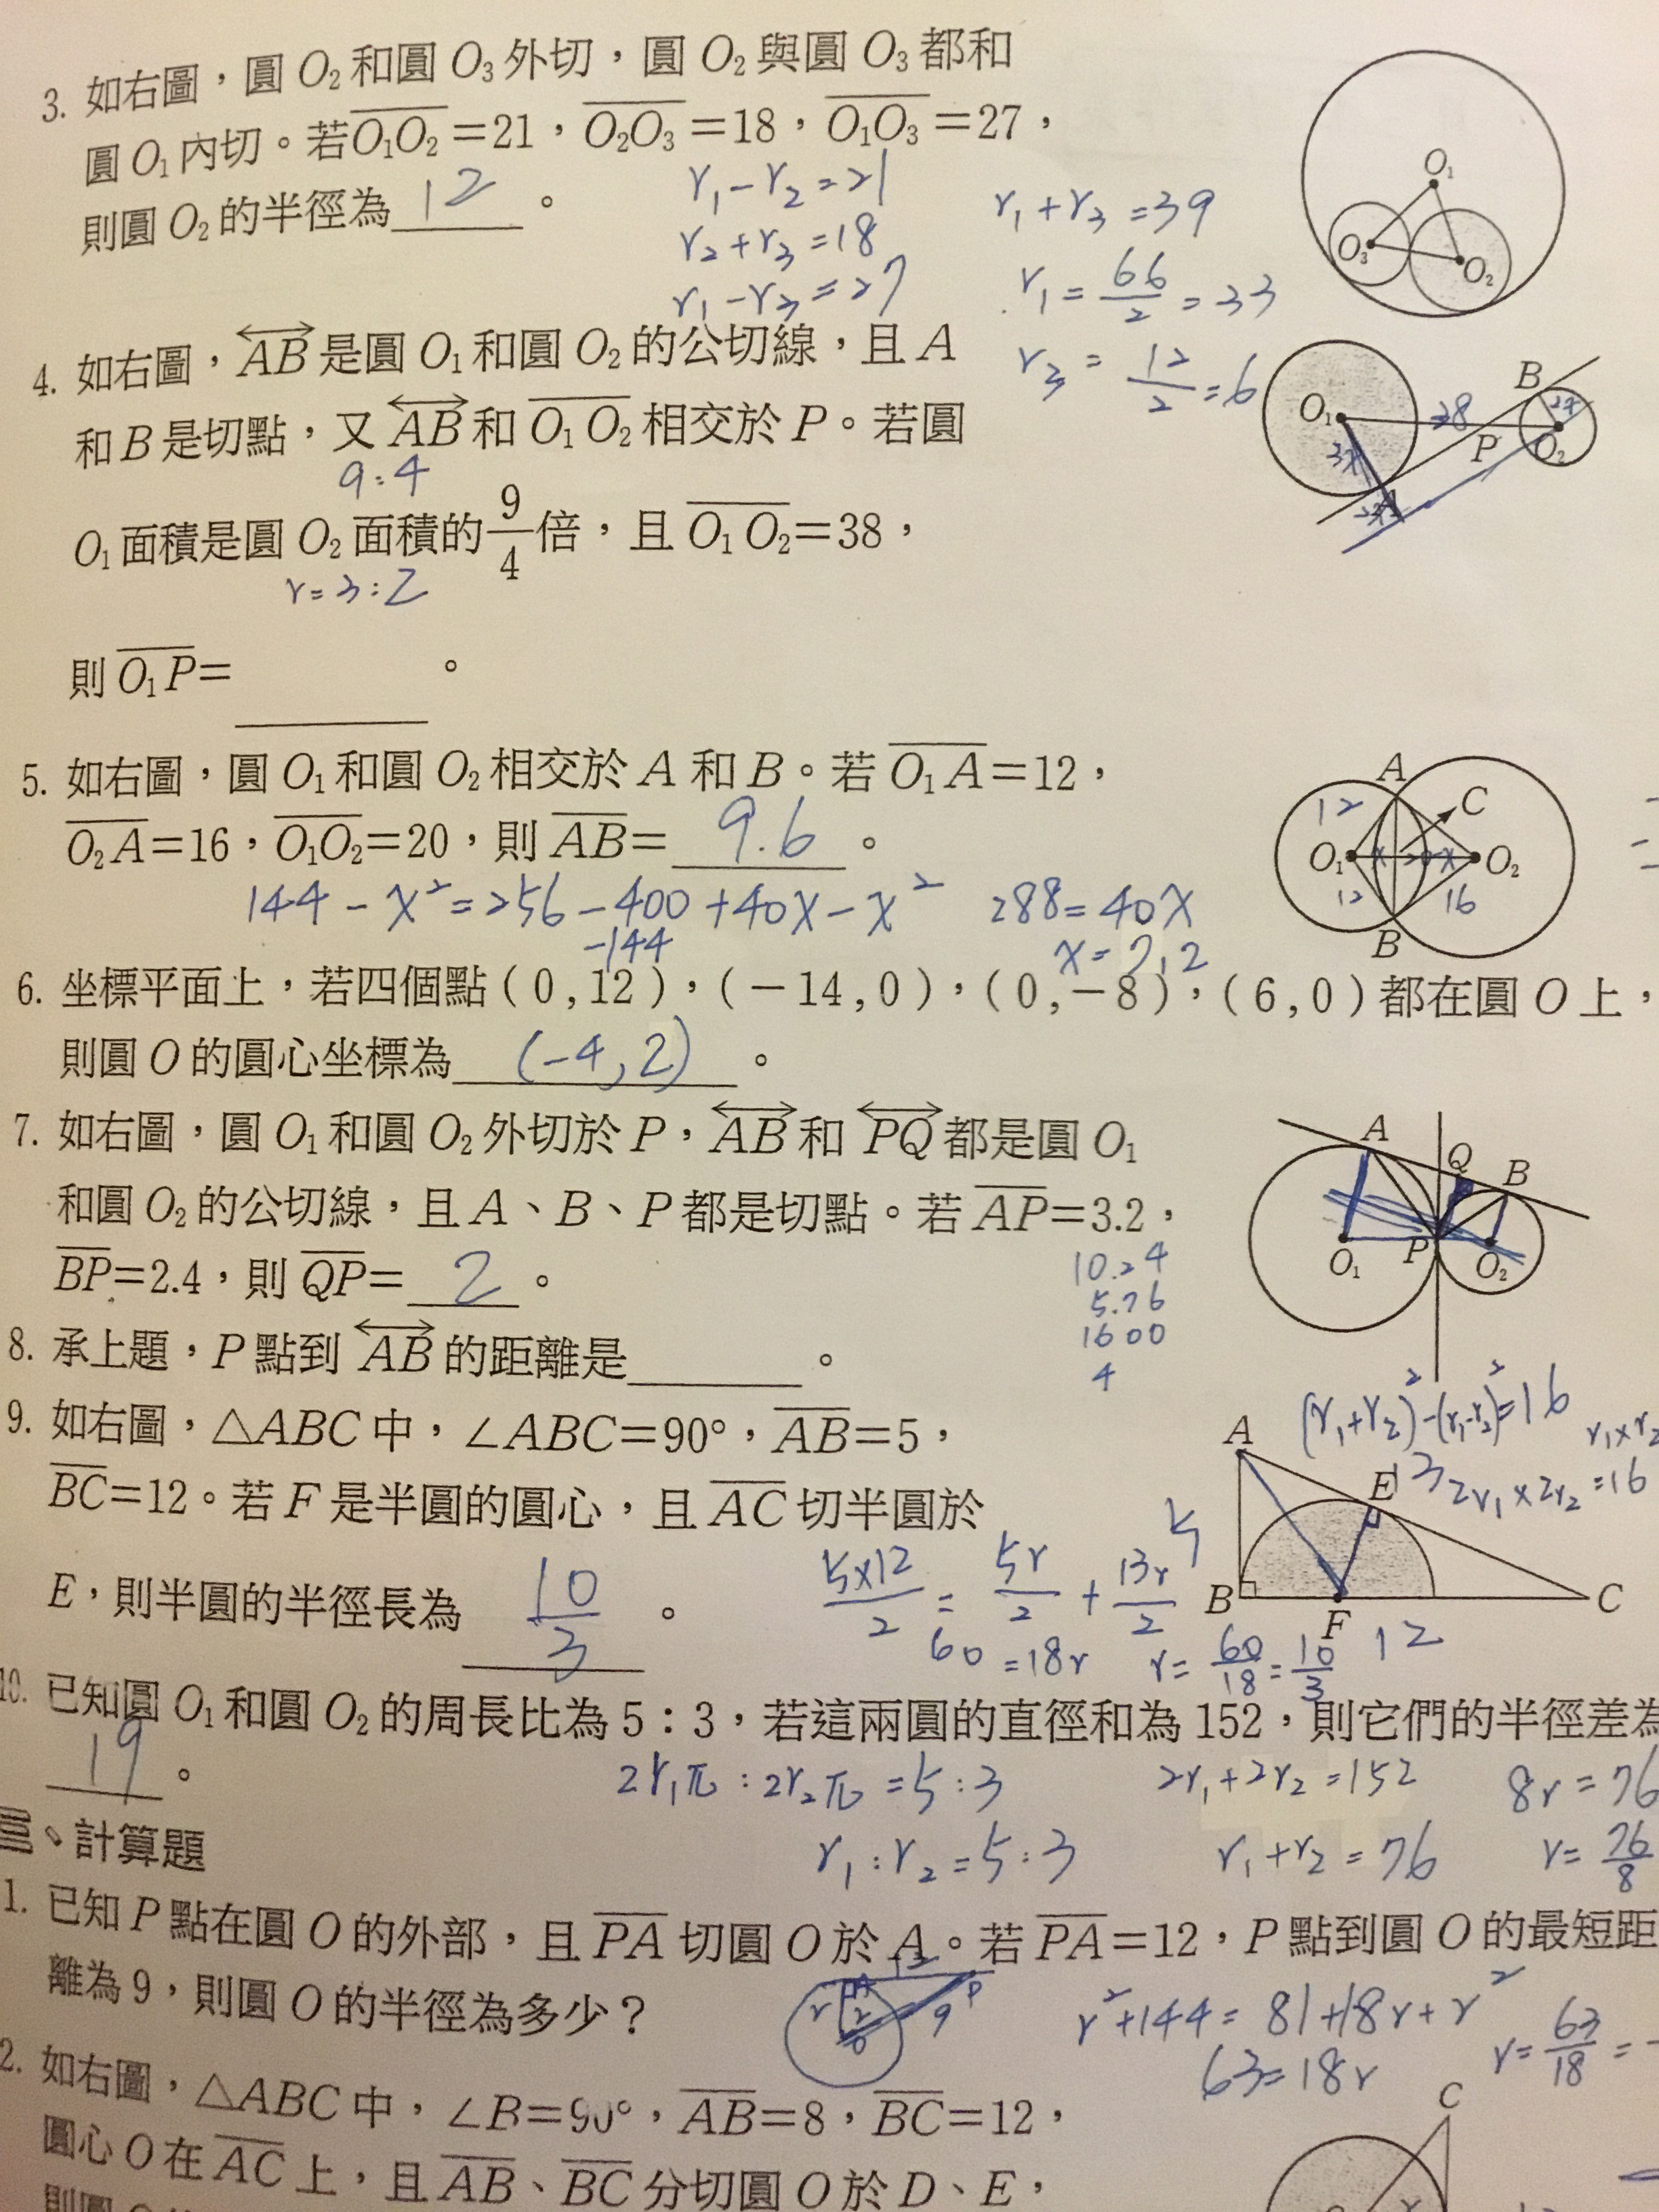 3. 如右圖，圓 O₂ 和圓 O₃ 外切，圓 O₂ 與圓 O₃ 都和
圓 O₁ 內切。若 O₁O₂=21，O₂O₃=18，O₁O₃=27，
則圓 O₂ 的半徑為 12 。
r₁-r₂=21
r₂+r₃=18
r₁-r₃=27
r₁+r₃=39
r₁=66/2=33
r₃=12/2=6
O₁
O₃
O₂
4. 如右圖，AB 是圓 O₁ 和圓 O₂ 的公切線，且 A
和 B 是切點，又 AB 和 O₁O₂ 相交於 P。若圓
9:4
O₁ 面積是圓 O₂ 面積的 9/4 倍，且 O₁O₂=38，
r=3:2
則 O₁P= 。
O₁
38
B
2x
P
O₂
3x
A
2x
5. 如右圖，圓 O₁ 和圓 O₂ 相交於 A 和 B。若 O₁A=12，
O₂A=16，O₁O₂=20，則 AB= 9.6 。
144-x²=256-400+40x-x²
-144
288=40x
x=7.2
A
12
C
O₁
x
20-x
O₂
12
16
B
6. 坐標平面上，若四個點(0,12)，(-14,0)，(0,-8)，(6,0)都在圓 O 上，
則圓 O 的圓心坐標為 (-4,2) 。
7. 如右圖，圓 O₁ 和圓 O₂ 外切於 P，AB 和 PQ 都是圓 O₁
和圓 O₂ 的公切線，且 A、B、P 都是切點。若 AP=3.2，
BP=2.4，則 QP= 2 。
10.24
5.76
1600
4
A
Q
B
O₁
P
O₂
8. 承上題，P 點到 AB 的距離是 。
(r₁+r₂)²-(r₁-r₂)²=16
r₁×r₂
2r₁×2r₂=16
9. 如右圖，△ABC 中，∠ABC=90°，AB=5，
BC=12。若 F 是半圓的圓心，且 AC 切半圓於
E，則半圓的半徑長為 10/3 。
5×12/2=5r/2+13r/2
60=18r
r=60/18=10/3
A
E
13
5
B
F
C
12
10. 已知圓 O₁ 和圓 O₂ 的周長比為 5：3，若這兩圓的直徑和為 152，則它們的半徑差為
19 。
2r₁π:2r₂π=5:3
r₁:r₂=5:3
2r₁+2r₂=152
r₁+r₂=76
8r=76
r=76/8
三、計算題
1. 已知 P 點在圓 O 的外部，且 PA 切圓 O 於 A。若 PA=12，P 點到圓 O 的最短距
離為 9，則圓 O 的半徑為多少？
12
A
P
r
r
9
O
r²+144=81+18r+r²
63=18r
r=63/18=
2. 如右圖，△ABC 中，∠B=90°，AB=8，BC=12，
圓心 O 在 AC 上，且 AB、BC 分切圓 O 於 D、E，
C